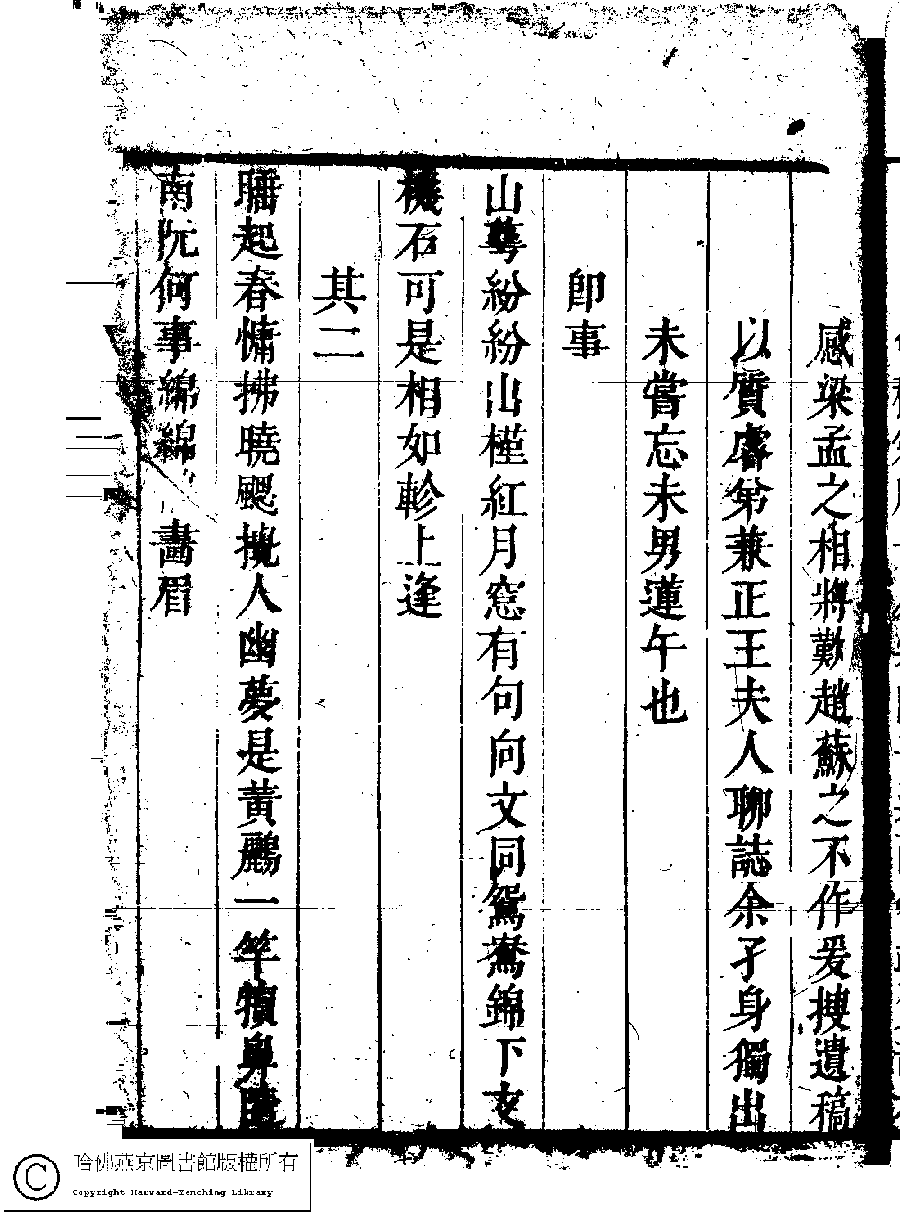 感梁孟之相將歎趙蘇之不作爰搜遺稿
以質睿弟兼正王夫人聊誌余孑身獨出
未嘗忘未男蓮午也
即事
山蕚紛紛出槿紅月窓有句向文同鴛鴦錦下支
機石可是相如軫上逢
其二
睡起春慵拂曉颸攪人幽夢是黃鸝一竿犢鼻
南阮何事綿綿畵眉
哈佛燕京圖書館版權所有
Copyright Harvard-Yenching Library